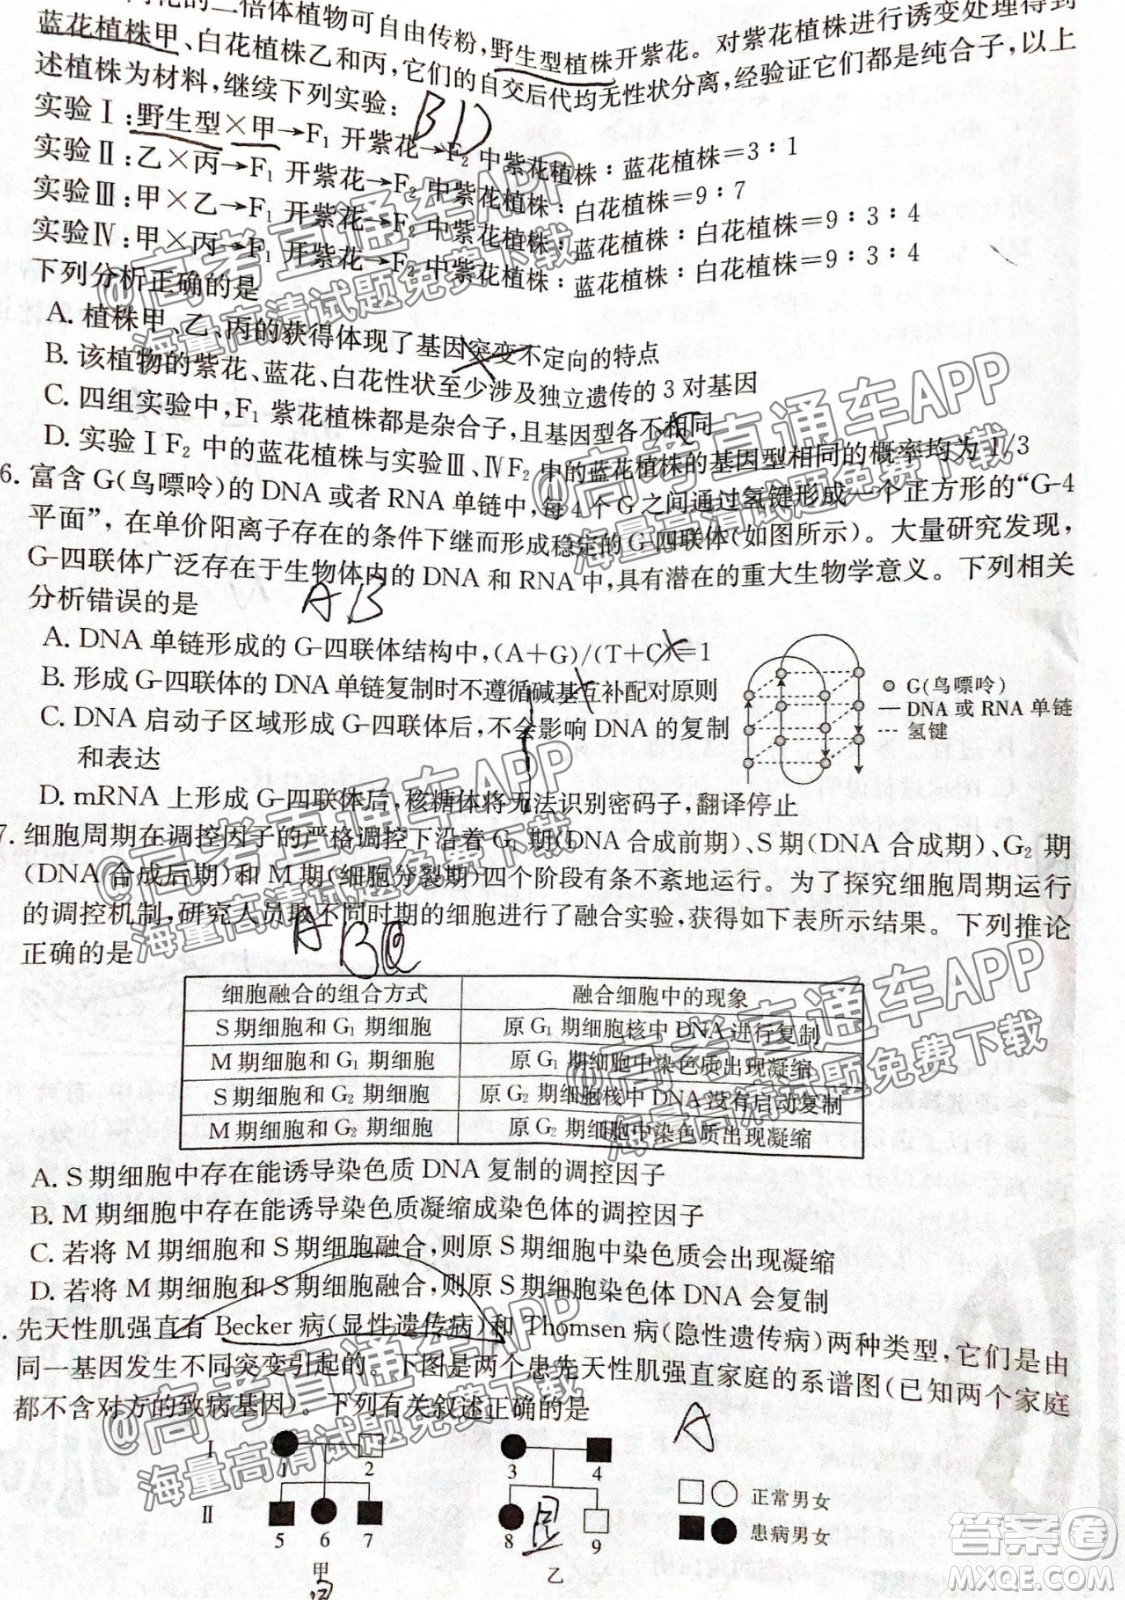 花的二倍体植物可自由传粉，野生型植株开紫花。对紫花植株进行诱变处理得到
蓝花植株甲、白花植株乙和丙，它们的自交后代均无性状分离，经验证它们都是纯合子，以上
述植株为材料，继续下列实验：
BD
实验Ⅰ：野生型×甲→F₁ 开紫花→F₂ 中紫花植株：蓝花植株＝3：1
实验Ⅱ：乙×丙→F₁ 开紫花→F₂ 中紫花植株：白花植株＝9：7
实验Ⅲ：甲×乙→F₁ 开紫花→F₂ 中紫花植株：蓝花植株：白花植株＝9：3：4
实验Ⅳ：甲×丙→F₁ 开紫花→F₂ 中紫花植株：蓝花植株：白花植株＝9：3：4
下列分析正确的是
A. 植株甲、乙、丙的获得体现了基因突变不定向的特点
B. 该植物的紫花、蓝花、白花性状至少涉及独立遗传的 3 对基因
C. 四组实验中，F₁ 紫花植株都是杂合子，且基因型各不相同
D. 实验Ⅰ F₂ 中的蓝花植株与实验Ⅲ、Ⅳ F₂ 中的蓝花植株的基因型相同的概率均为 1/3
6. 富含 G(鸟嘌呤)的 DNA 或者 RNA 单链中，每 4 个 G 之间通过氢键形成一个正方形的“G-4
平面”，在单价阳离子存在的条件下继而形成稳定的 G-四联体(如图所示)。大量研究发现，
G-四联体广泛存在于生物体内的 DNA 和 RNA 中，具有潜在的重大生物学意义。下列相关
分析错误的是
AB
A. DNA 单链形成的 G-四联体结构中，(A+G)/(T+C)=1
B. 形成 G-四联体的 DNA 单链复制时不遵循碱基互补配对原则
C. DNA 启动子区域形成 G-四联体后，不会影响 DNA 的复制
和表达
D. mRNA 上形成 G-四联体后，核糖体将无法识别密码子，翻译停止
G(鸟嘌呤)
DNA 或 RNA 单链
氢键
7. 细胞周期在调控因子的严格调控下沿着 G₁ 期(DNA 合成前期)、S 期(DNA 合成期)、G₂ 期
(DNA 合成后期)和 M 期(细胞分裂期)四个阶段有条不紊地运行。为了探究细胞周期运行
的调控机制，研究人员取不同时期的细胞进行了融合实验，获得如下表所示结果。下列推论
正确的是
细胞融合的组合方式 融合细胞中的现象
S 期细胞和 G₁ 期细胞 原 G₁ 期细胞核中 DNA 进行复制
M 期细胞和 G₁ 期细胞 原 G₁ 期细胞中染色质出现凝缩
S 期细胞和 G₂ 期细胞 原 G₂ 期细胞核中 DNA 没有启动复制
M 期细胞和 G₂ 期细胞 原 G₂ 期细胞中染色质出现凝缩
A. S 期细胞中存在能诱导染色质 DNA 复制的调控因子
B. M 期细胞中存在能诱导染色质凝缩成染色体的调控因子
C. 若将 M 期细胞和 S 期细胞融合，则原 S 期细胞中染色质会出现凝缩
D. 若将 M 期细胞和 S 期细胞融合，则原 S 期细胞染色体 DNA 会复制
. 先天性肌强直有 Becker 病(显性遗传病)和 Thomsen 病(隐性遗传病)两种类型，它们是由
同一基因发生不同突变引起的。下图是两个患先天性肌强直家庭的系谱图(已知两个家庭
都不含对方的致病基因)。下列有关叙述正确的是
A
Ⅰ 1 2 3 4
Ⅱ 5 6 7 8 9
显
甲 乙
正常男女
患病男女
@高考直通车APP
海量高清试题免费下载
@高考直通车APP
海量高清试题免费下载
@高考直通车APP
海量高清试题免费下载
@高考直通车APP
海量高清试题免费下载
@高考直通车APP
海量高清试题免费下载
答案圈
MXQE.COM